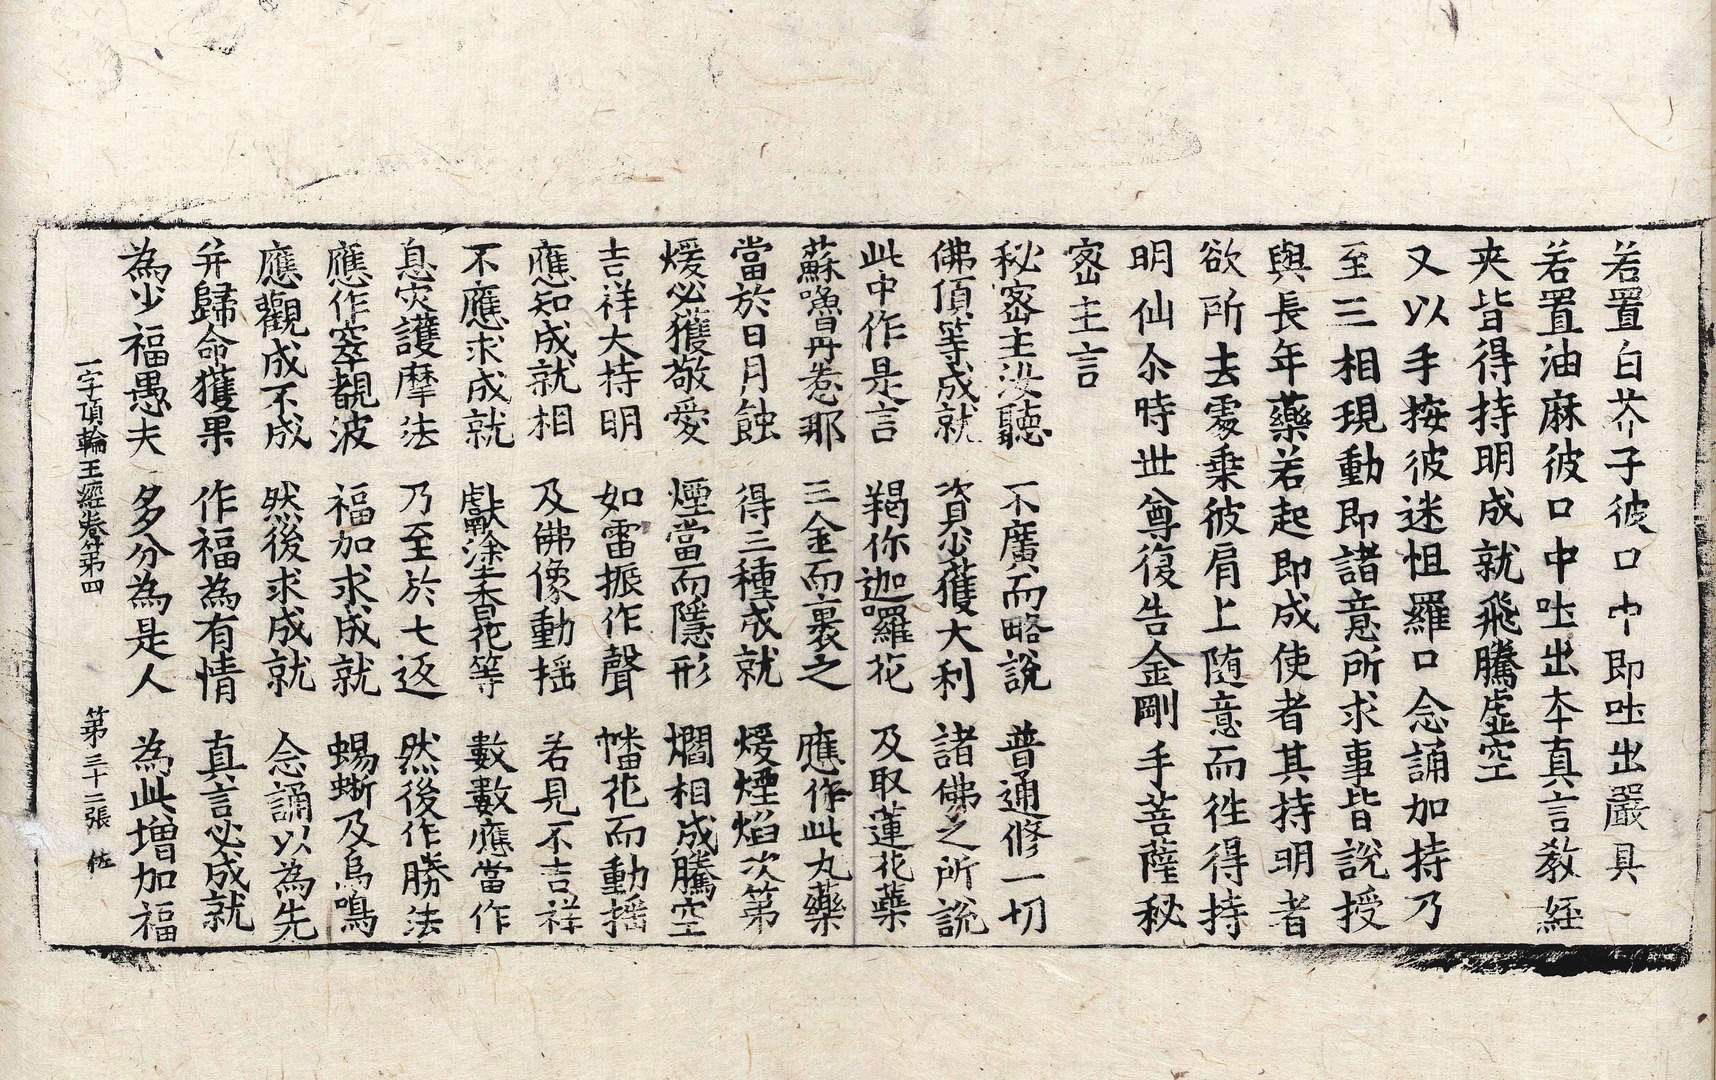 若置白芥子彼口中即吐出嚴具
若置油麻彼口中吐出本真言教經
夾皆得持明成就飛騰虛空
又以手按彼迷怛羅口念誦加持乃
至三相現動即諸意所求事皆說授
與長年藥若起即成使者其持明者
欲所去處乗彼肩上随意而徃得持
明仙尒時世尊復告金剛手菩薩秘
宻主言
秘宻主汝聽　不廣而略說　普通修一切
佛頂等成就　資具獲大利　諸佛之所說
此中作是言　羯你迦囉花　及取蓮花蘂
蘇嚕丹惹那　三金而裹之　應作此丸藥
當於日月蝕　得三種成就　煖煙焰次第
煖必獲敬愛　煙當而隱形　爓相成騰空
吉祥大持明　如雷振作聲　幡花而動揺
應知成就相　及佛像動揺　若見不吉祥
不應求成就　獻塗香花等　數數應當作
息灾護摩法　乃至於七返　然後作勝法
應作窣覩波　福加求成就　蜴蜥及烏鳴
應觀成不成　然後求成就　念誦以為先
并歸命獲果　作福為有情　真言必成就
為少福愚夫　多分為是人　為此增加福
一字頂輪王經卷第四　第三十二張　佐